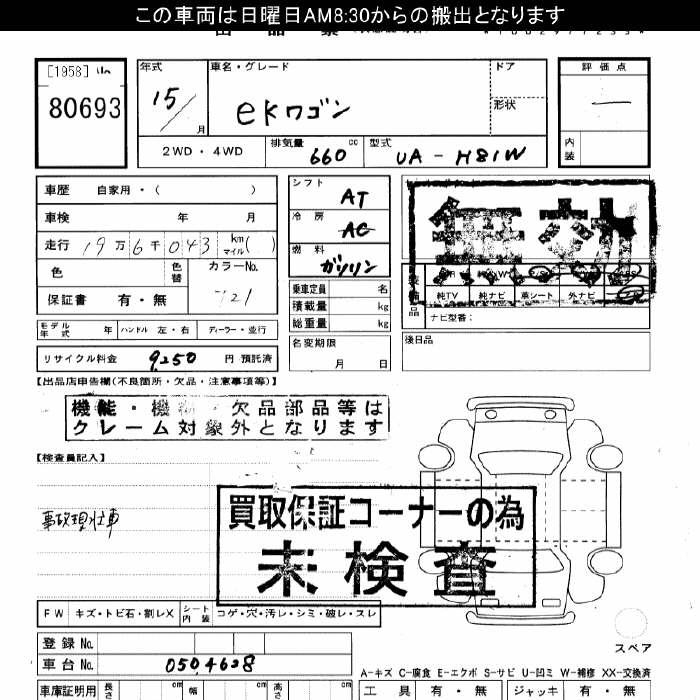 この車両は日曜日AM8:30からの搬出となります
[1958] 山
80693
年式
15/
月
車名・グレード
eKワゴン
ドア
形状
評価点
—
内装
2WD・4WD
排気量
660
cc
型式
UA-H81W
車歴 自家用・( )
車検 年 月
走行 19万6千043 km マイル( )
色
色替
カラーNo.
保証書 有・無
721
モデル年式 年
ハンドル 左・右
ディーラー・並行
リサイクル料金 9,250 円 預託済
シフト
AT
冷房
AC
燃料
ガソリン
乗車定員 名
積載量 kg
総重量 kg
名変期限
月 日
無効
純TV 純ナビ 革シート 外ナビ
ナビ型番:
後日品
【出品店申告欄(不良箇所・欠品・注意事項等)】
機能・機 ・欠品部品等は
クレーム対象外となります
【検査員記入】
事故現状車
買取保証コーナーの為
未検査
FW キズ・トビ石・割レX
シート内装 コゲ・穴・汚レ・シミ・破レ・スレ
スペア
登録No.
車台No. 0504628
A-キズ C-腐食 E-エクボ S-サビ U-凹ミ W-補修 XX-交換済
車庫証明用 長さ cm 幅 cm 高さ cm
工具 有・無 ジャッキ 有・無